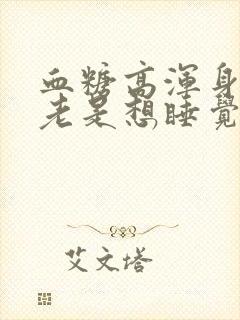 血糖高渾身
老是想睡覺
艾文塔